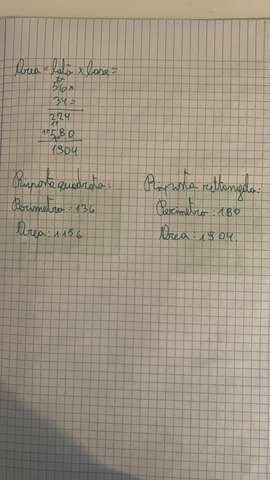 Area = lato x base =
56 x
34 =
224
1680
1904
Risposta quadrato:
Perimetro: 136
Area: 1156
Risposta rettangolo:
Perimetro: 180
Area: 1904.